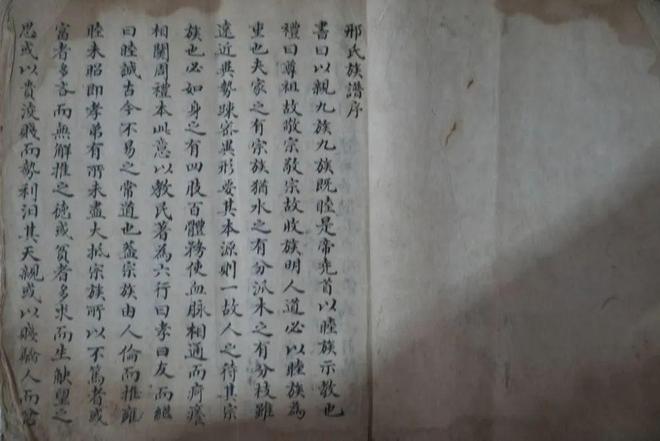 邢氏族譜序
書曰以親九族九族既睦是帝堯首以睦族示教也
禮曰尊祖故敬宗敬宗故收族明人道必以睦族為
重也夫家之有宗族猶水之有分派木之有分枝雖
遠近異勢踈宻異形要其本源則一故人之待其宗
族也必如身之有四肢百體務使血脉相通而疴癢
相関周禮本此意以教民著為六行曰孝曰友而繼
曰睦誠古今不易之常道也葢宗族由人倫而推雍
睦未昭即孝弟有所未盡大抵宗族所以不篤者或
富者多吝而無解推之徳或貧者多求而生觖望之
思或以貴淩賤而勢利汨其天親或以賤驕人而